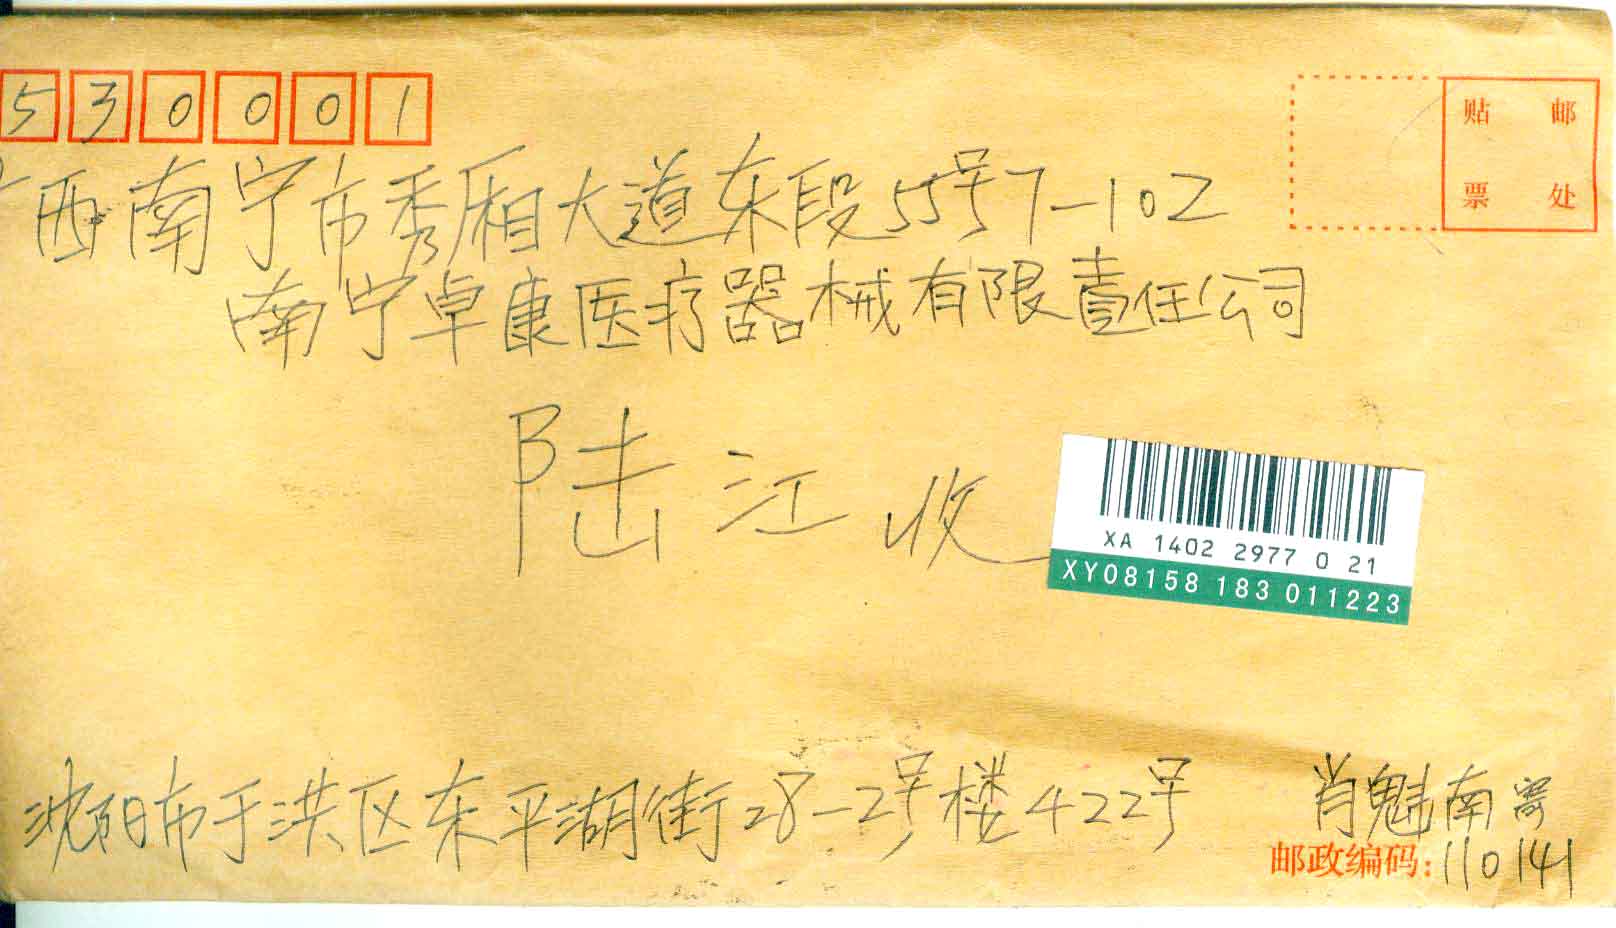 530001
贴 邮
票 处
广西南宁市秀厢大道东段55号7-102
南宁卓康医疗器械有限责任公司
陆江 收
XA 1402 2977 0 21
XY08158 183 011223
沈阳市于洪区东平湖街28-2号楼422号 肖魁南寄
邮政编码:110141